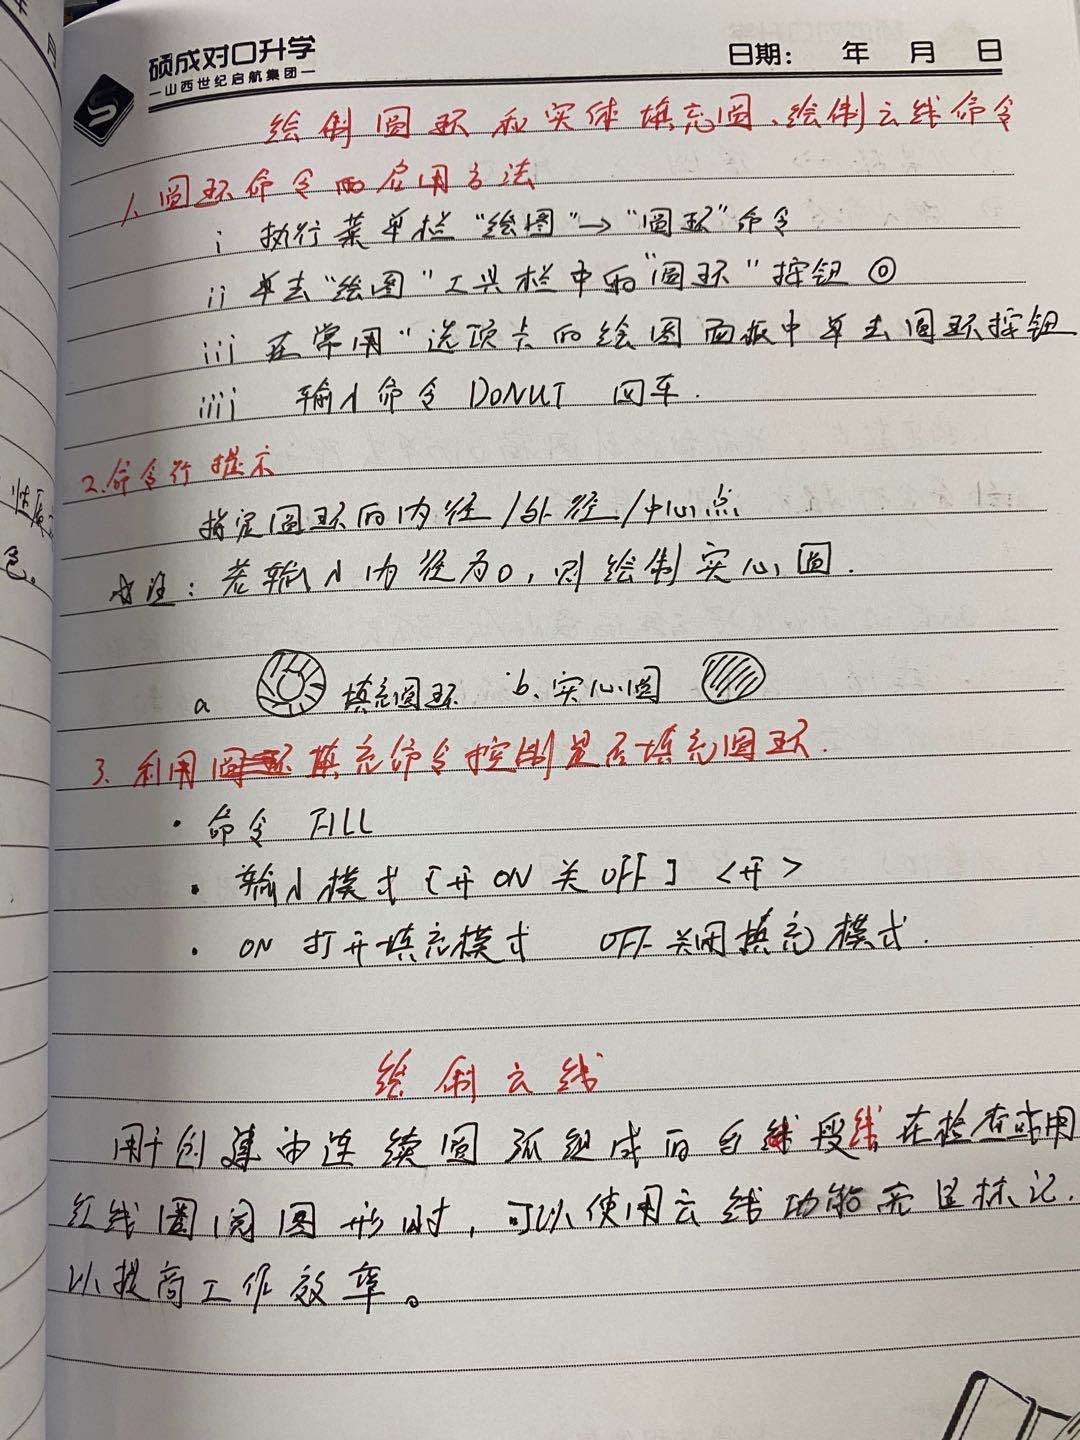 硕成对口升学
—山西世纪启航集团—
日期： 年 月 日
绘制圆环和实体填充圆、绘制云线命令
1、圆环命令的启用方法
i 执行菜单栏“绘图”→“圆环”命令
ii 单击“绘图”工具栏中的“圆环”按钮
iii 在常用”选项卡的绘图面板中单击圆环按钮
iiii 输入命令 DONUT 回车.
2.命令行提示
指定圆环的内径/外径/中心点
注：若输入内径为0，则绘制实心圆.
a 填充圆环 b、实心圆
3. 利用填充命令控制是否填充圆环.
· 命令 FILL
· 输入模式[开 ON 关 OFF] <开>
· ON 打开填充模式 OFF 关闭填充模式.
绘制云线
用于创建由连续圆弧组成的多段线在检查或用
红线圈阅图形时，可以使用云线功能亮显标记.
以提高工作效率。
年
月
性质
色。